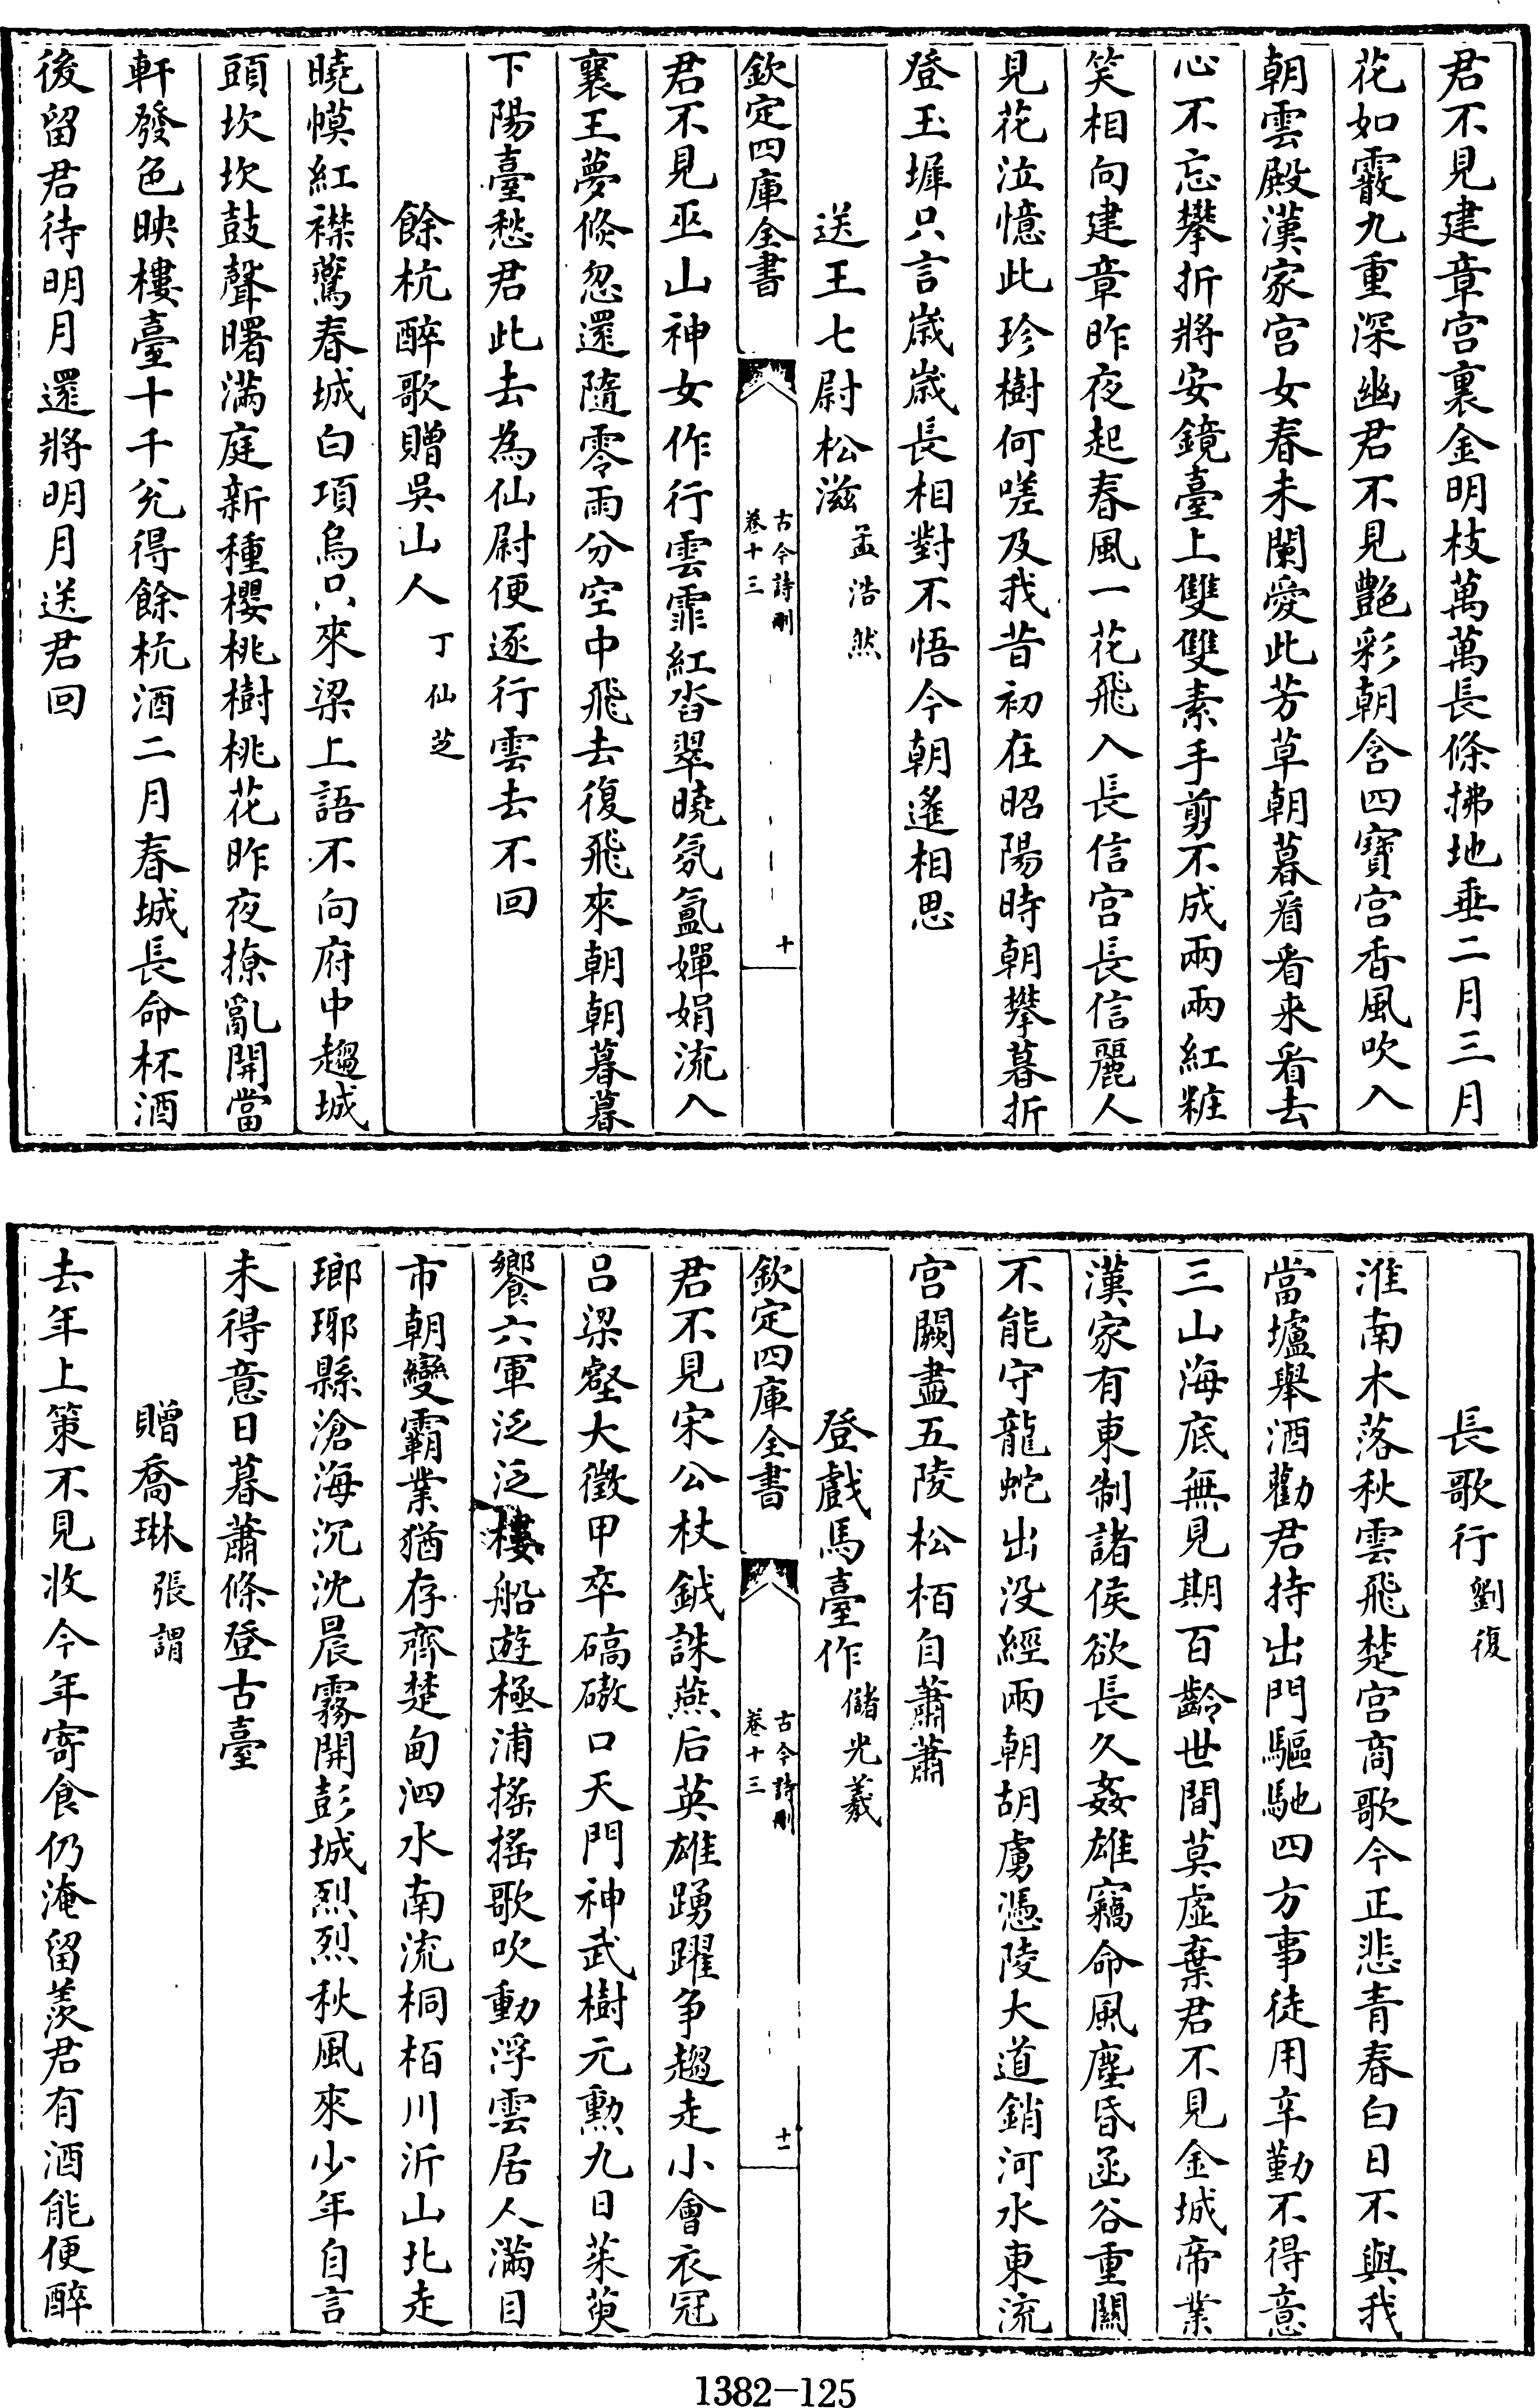 君不見建章宫裏金明枝萬萬長條拂地垂二月三月
花如霰九重深幽君不見艶彩朝含四寶宫香風吹入
朝雲殿漢家宫女春未闌愛此芳草朝暮看看来看去
心不忘攀折將安鏡臺上雙雙素手剪不成兩兩紅粧
笑相向建章昨夜起春風一花飛入長信宫長信麗人
見花泣憶此珍樹何嗟及我昔初在昭陽時朝攀暮折
登玉墀只言歲歲長相對不悟今朝遙相思
送王七尉松滋 孟浩然
欽定四庫全書 古今詩刪 卷十三 十
君不見巫山神女作行雲霏紅沓翠曉氛氳嬋娟流入
襄王夢倐忽還隨零雨分空中飛去復飛來朝朝暮暮
下陽臺愁君此去為仙尉便逐行雲去不回
餘杭醉歌贈吳山人 丁仙芝
曉幙紅襟鷰春城白項烏只來梁上語不向府中趨城
頭坎坎鼓聲曙滿庭新種櫻桃樹桃花昨夜撩亂開當
軒發色映樓臺十千兊得餘杭酒二月春城長命杯酒
後留君待明月還將明月送君回
長歌行 劉復
淮南木落秋雲飛楚宫商歌今正悲青春白日不與我
當壚舉酒勸君持出門驅馳四方事徒用辛勤不得意
三山海底無見期百齡世間莫虛棄君不見金城帝業
漢家有東制諸侯欲長久姦雄竊命風塵昏函谷重關
不能守龍蛇出没經兩朝胡虜憑陵大道銷河水東流
宫闕盡五陵松栢自蕭蕭
登戲馬臺作 儲光羲
欽定四庫全書 古今詩刪 卷十三 十一
君不見宋公杖鉞誅燕后英雄踴躍爭趨走小會衣冠
吕梁壑大徵甲卒碻磝口天門神武樹元勲九日茱萸
饗六軍泛泛樓船遊極浦搖搖歌吹動浮雲居人滿目
市朝變霸業猶存齊楚甸泗水南流桐栢川沂山北走
瑯琊縣滄海沉沈晨霧開彭城烈烈秋風來少年自言
未得意日暮蕭條登古臺
贈喬琳 張謂
去年上策不見收今年寄食仍淹留羨君有酒能便醉
1382-125